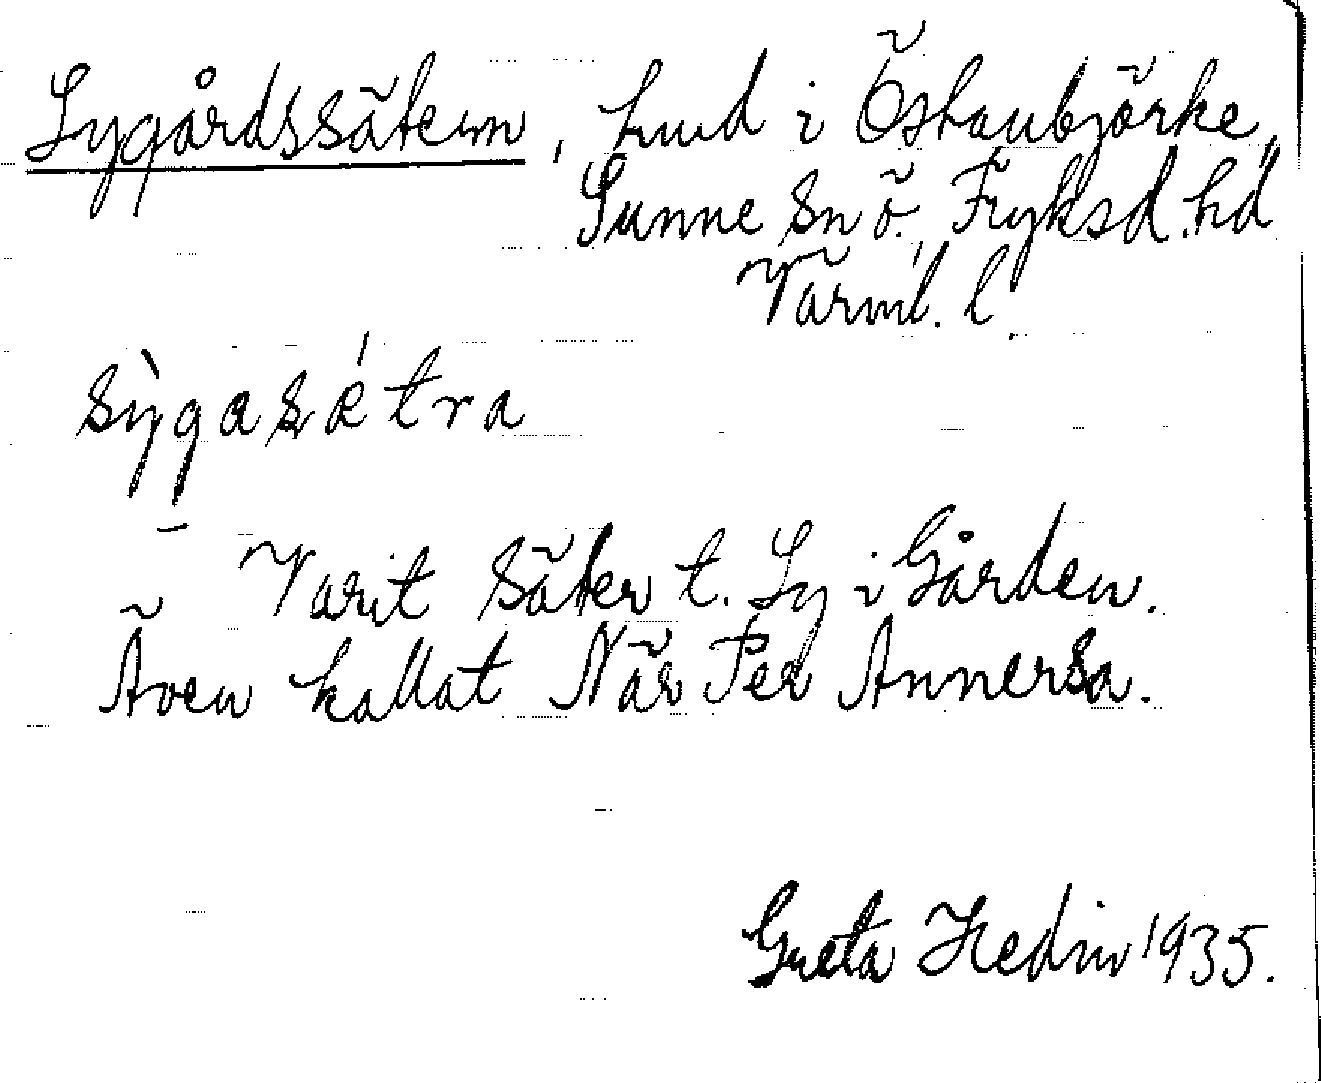 Sygårdssätern, hmd i Östanbjörke,
Sunne sn ö., Fryksd. hd
Värml. l.
sỳgasǽtra
Varit säter t. Sy i Gården.
Även kallat När Per Annersa.
Greta Hedin 1935.